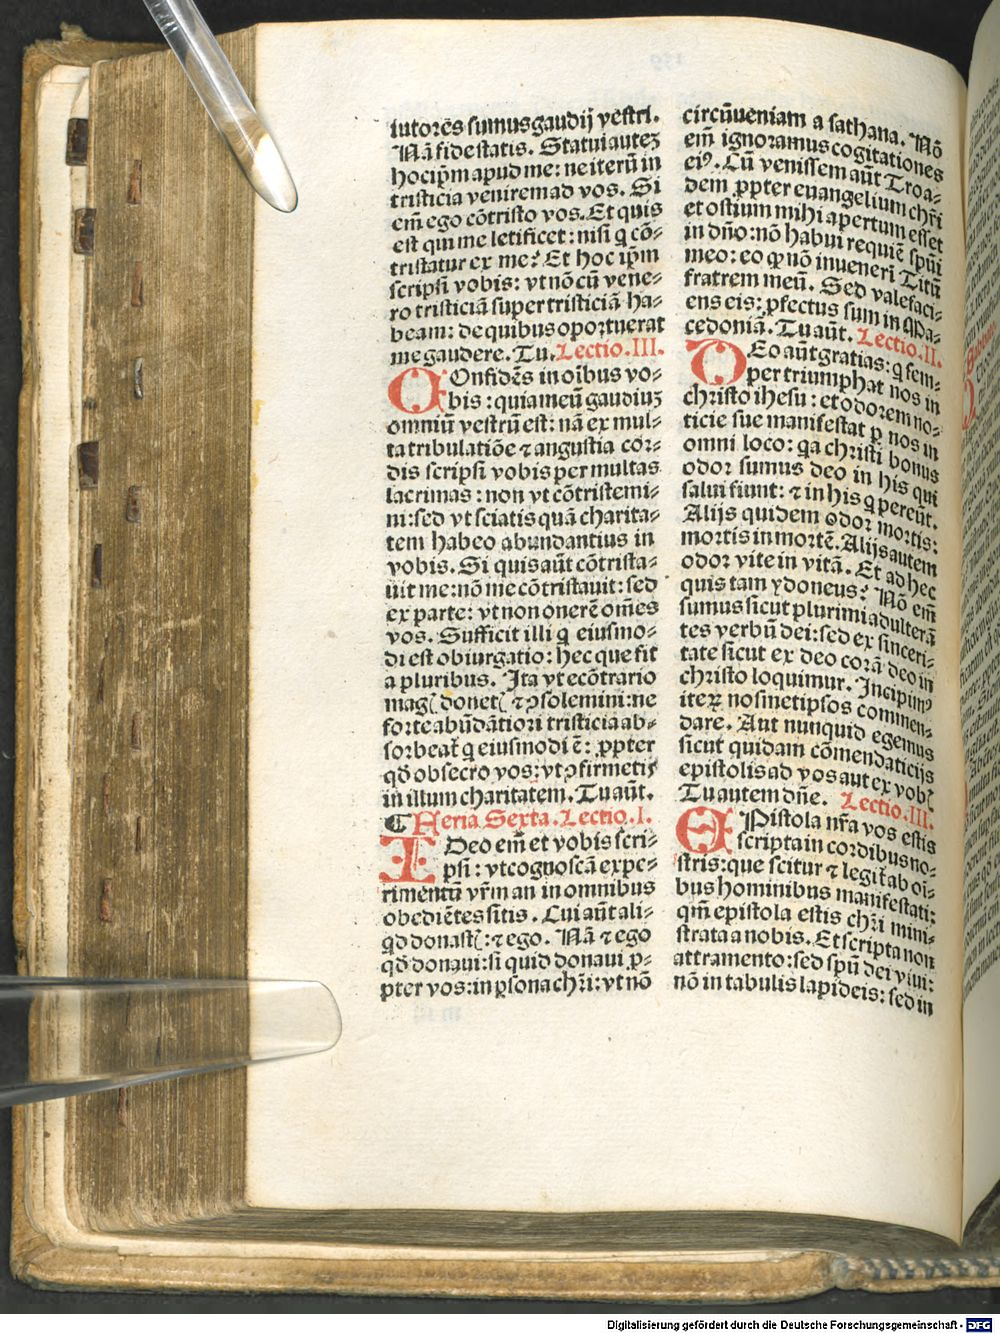 iutorēs sumus gaudij vestri.
Nā fide statis. Statui autez
hoc ip̄m apud me: ne iterū in
tristicia venirem ad vos. Si
em̄ ego cōtristo vos. Et quis
est qui me letificet: nisi q̄ cō⸗
tristatur ex me? Et hoc ip̄m
scripsi vobis: vt nō cū vene⸗
ro tristiciā super tristiciā ha⸗
beam: de quibus oportuerat
me gaudere. Tu. Lectio.III.
COnfidēs in oībus vo⸗
bis: quia meū gaudiuz
omniū vestrū est: nā ex mul⸗
ta tribulatiōe ⁊ angustia cor⸗
dis scripsi vobis per multas
lacrimas: non vt cōtristemi⸗
ni: sed vt sciatis quā charita⸗
tem habeo abundantius in
vobis. Si quis aūt cōtrista⸗
uit me: nō me cōtristauit: sed
ex parte: vt non onerē om̄es
vos. Sufficit illi q̄ eiusmo⸗
di est obiurgatio: hec que fit
a pluribus. Ita vt ecōtrario
magꝭ donetꝭ ⁊ ꝯsolemini: ne
forte abūdātiori tristicia ab⸗
sorbeat̄ q̄ eiusmodi ē: ꝓpter
qd̄ obsecro vos: vt ꝯfirmetis
in illum charitatem. Tu aūt.
¶ Feria Sexta. Lectio.I.
IDeo em̄ et vobis scri⸗
psi: vt cognoscā expe⸗
rimentū vr̄m an in omnibus
obediētes sitis. Cui aūt ali⸗
qd̄ donastꝭ: ⁊ ego. Nā ⁊ ego
qd̄ donaui: si quid donaui ꝓ⸗
pter vos: in ꝑsona chr̄i: vt nō
circūueniam a sathana. Nō
em̄ ignoramus cogitationes
eiꝰ. Cū venissem aūt Troa⸗
dem ꝓpter euangelium chr̄i
et ostium mihi apertum esset
in dn̄o: nō habui requiē spūi
meo: eo ꝙ nō inueneri Titū
fratrem meū. Sed valefaci⸗
ens eis: ꝓfectus sum in Ma⸗
cedoniā. Tu aūt. Lectio.II.
DEo aūt gratias: q̄ sem⸗
per triumphat nos in
christo ihesu: et odorem no⸗
ticie sue manifestat ꝑ nos in
omni loco: qa christi bonus
odor sumus deo in his qui
salui fiunt: ⁊ in his q̄ pereūt.
Alijs quidem odor mortis:
mortis in mortē. Alijs autem
odor vite in vitā. Et ad hec
quis tam ydoneus? Nō em̄
sumus sicut plurimi adulterā
tes verbū dei: sed ex sinceri⸗
tate sicut ex deo corā deo in
christo loquimur. Incipimꝰ
iterꝝ nosmetipsos commen⸗
dare. Aut nunquid egemus
sicut quidam cōmendaticijs
epistolis ad vos aut ex vobꝭ
Tu autem dn̄e. Lectio.III.
EPistola nr̄a vos estis
scripta in cordibus no⸗
stris: que scitur ⁊ legit̄ ab oī⸗
bus hominibus manifestati:
qm̄ epistola estis chr̄i mini⸗
strata a nobis. Et scripta non
attramento: sed spū dei viui:
nō in tabulis lapideis: sed in
Digitalisierung gefördert durch die Deutsche Forschungsgemeinschaft - DFG